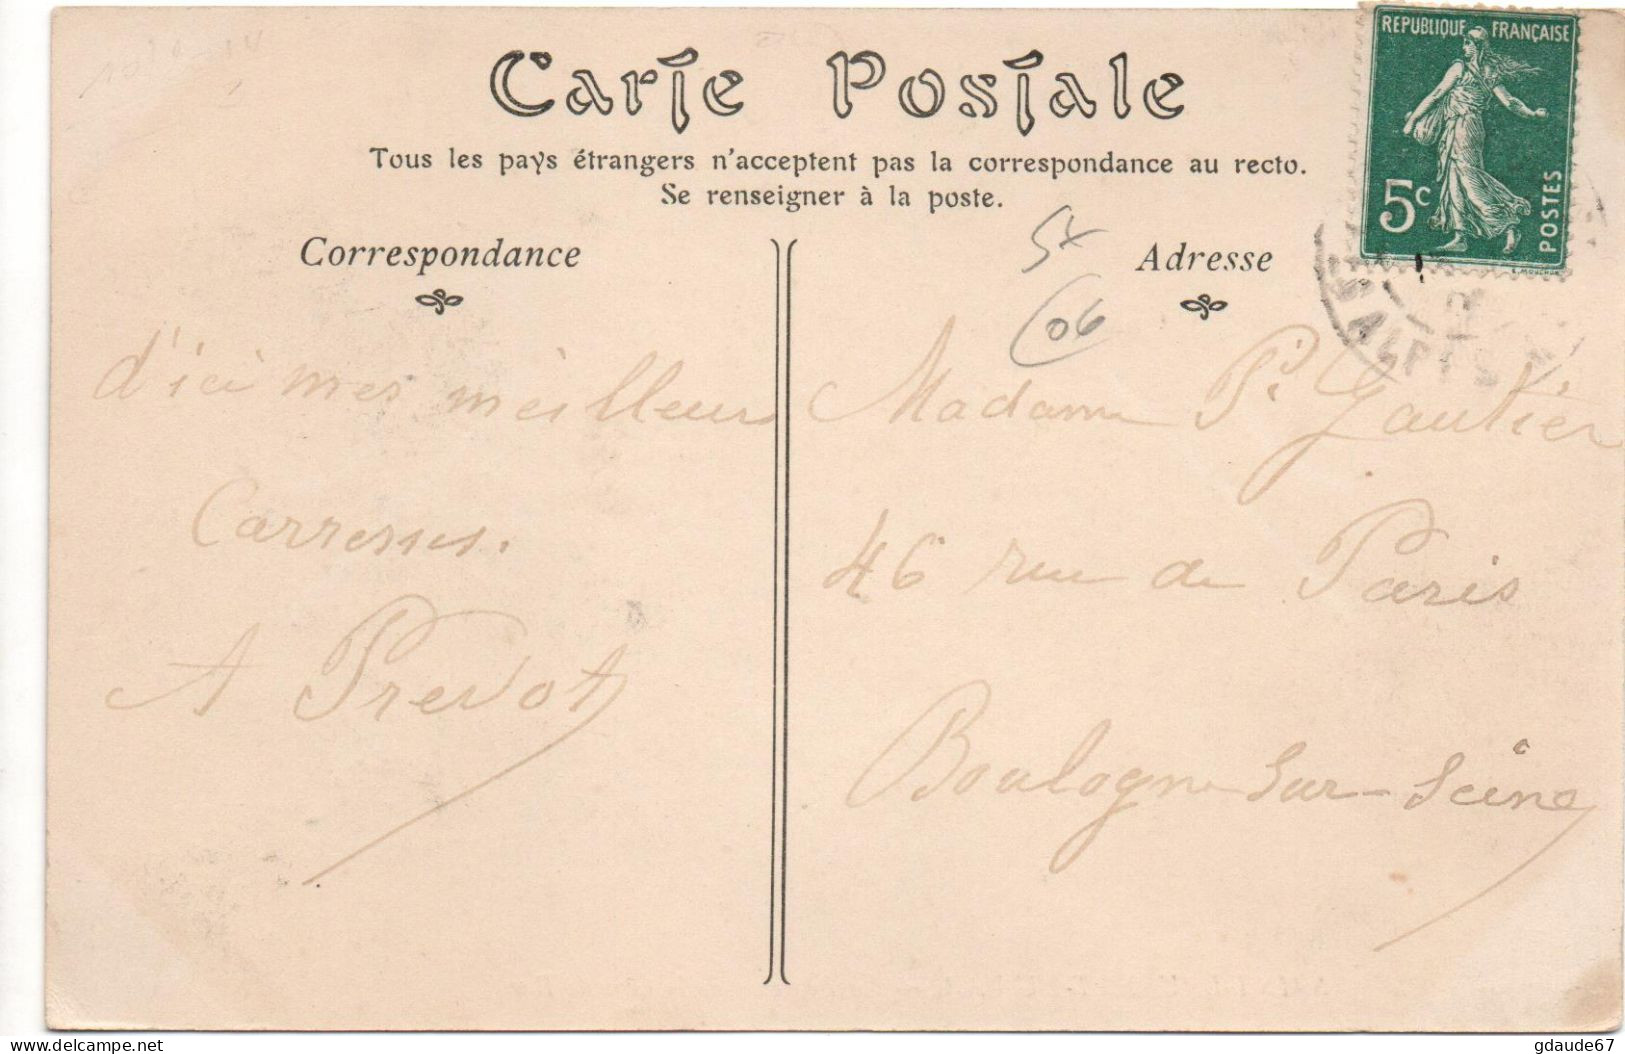 Carte Postale
Tous les pays étrangers n'acceptent pas la correspondance au recto.
Se renseigner à la poste.
RÉPUBLIQUE FRANÇAISE
5c
POSTES
E. MOUCHON
Correspondance
Adresse
06
ALPES
d'ici mes meilleurs
Carresses.
A Prevot
Madame P. Gautier
46 rue de Paris
Boulogne-sur-Seine
delcampe.net
gdaude67